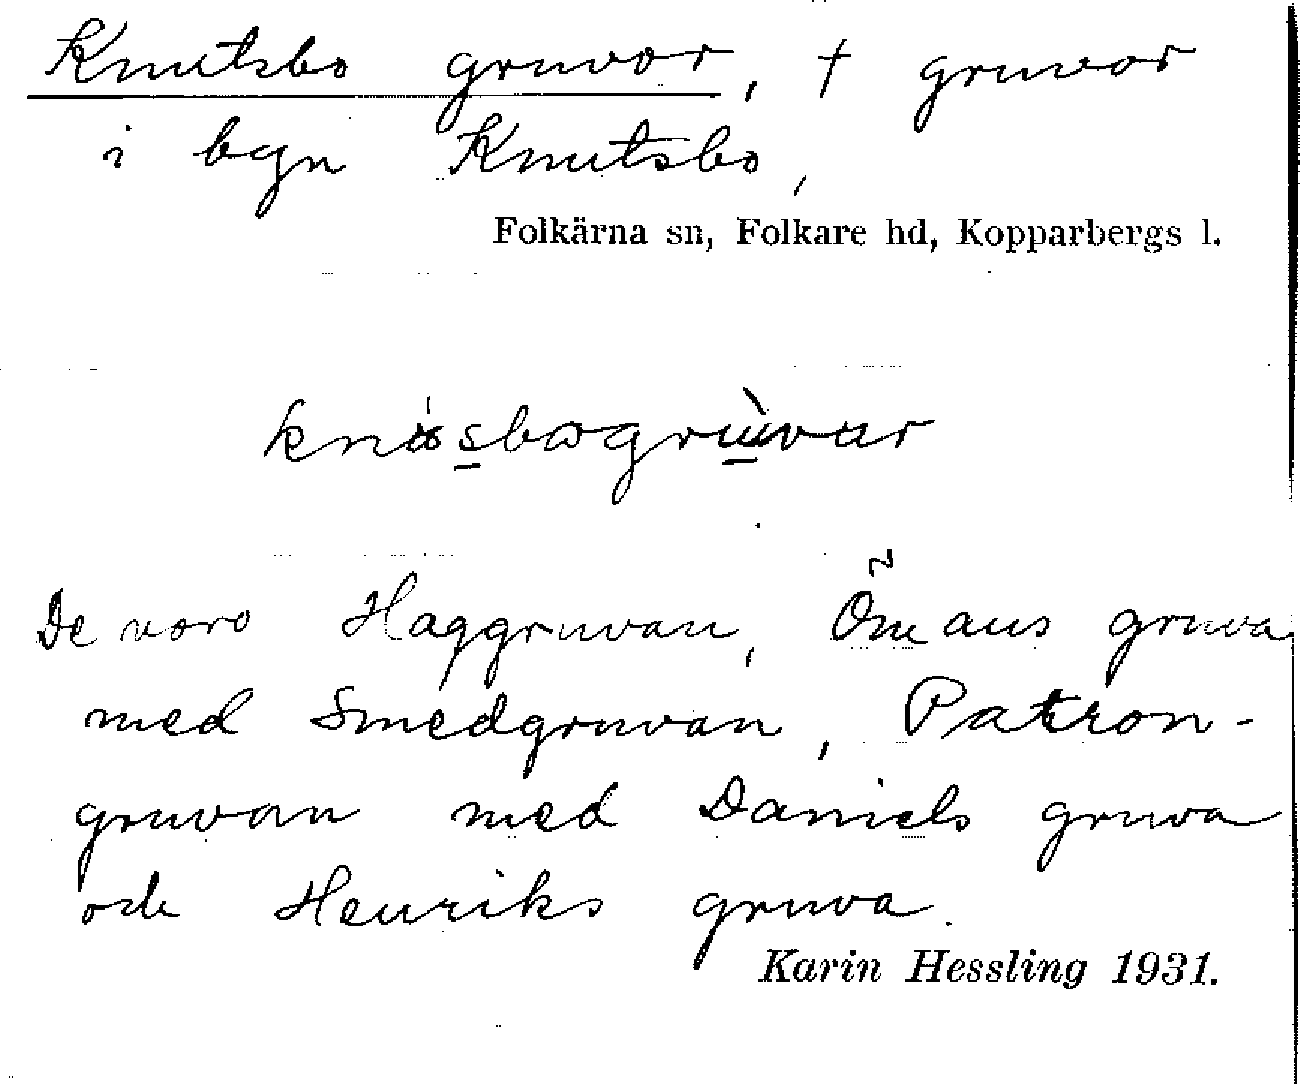 Knutsbo gruvor, † gruvor
i byn Knutsbo,
Folkärna sn, Folkare hd, Kopparbergs l.
De voro Haggruvan, Ömans gruva
med Smedgruvan, Patron-
gruvan med Daniels gruva
och Henriks gruva.
Karin Hessling 1931.